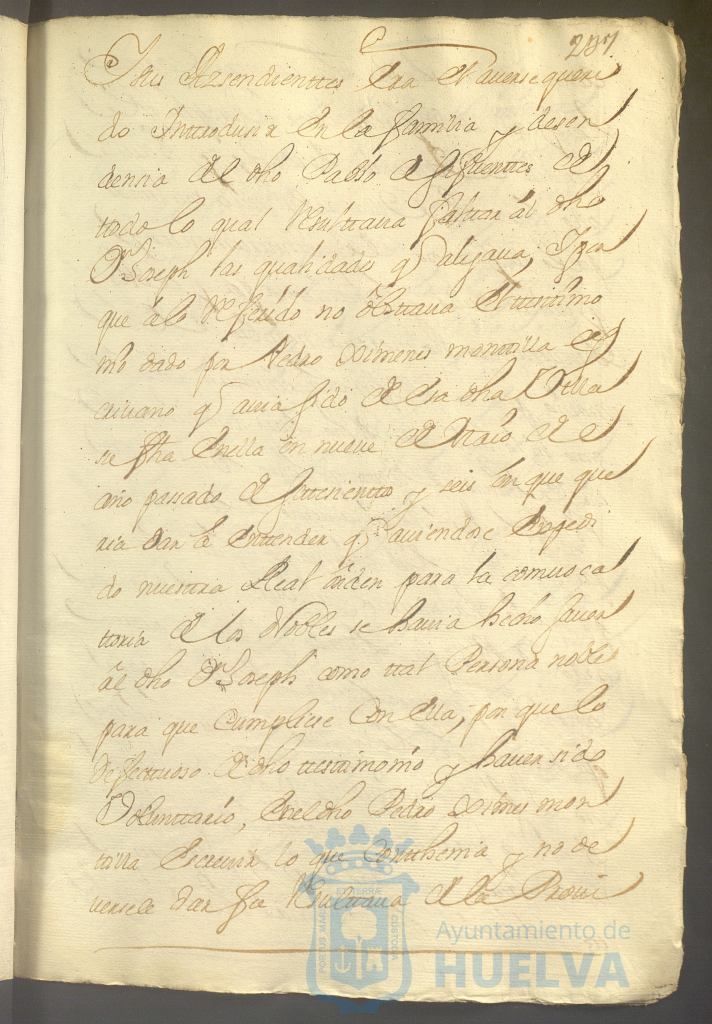 207
sus Aszendienttes era el averse queri
do Inttroduzir en la familia y desen
denzia del dho Pablo de fuenttes de
todo lo qual Resulttaua falttar al dho
Dn Joseph las qualidades q alegaua, Y por
que a lo Referido no obsttaua el testtimo
nio dado por Pedro Ximenes monttilla es
criuano q auia sido de esa dha Villa
su fha en ella en nueve de Maio de el
año pasado de settecientos y seis en que que
ria dar a enttender q auiendose Expedi
do nuesttra Real orden para la comuoca
ttoria de los Nobles se hauia hecho sauer
al dho Dn Joseph como ttal Persona noble
para que Cumpliese Con ella, por que lo
defecttuoso de dho testtimonio y hauer sido
Volunttario, en el dho Pedro Ximes mon
ttilla Escreuir lo que Conthenia y no de
uersele dar fee Resulttaua de la Proui
PORTUS MARIS ET TERRAE CUSTODIA
Ayuntamiento de
HUELVA